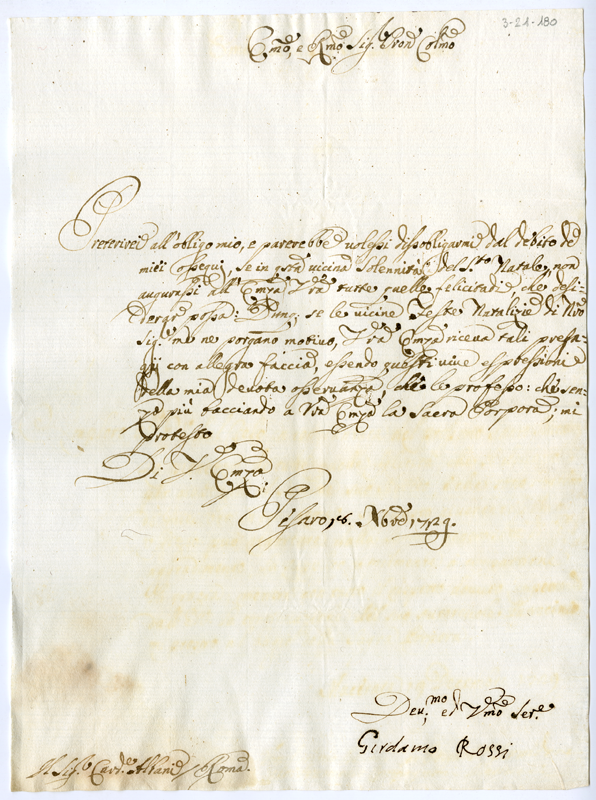 3-21-180
Em̃o, e Rm̃o Sig.r Pron Colmo
Preterirei all'obligo mio, e parerebbe volessi dissobligarmi dal debito de
miei ossequi, se in q̃sta vicina Solennità del S.to Natale, non
augurassi all' Em̃za Vr̃a tutte quelle felicità che desi-
derar possa: se le vicine Feste Natalizie di Nr̃o
Sig.re me ne porgano motivo, Vr̃a Em̃za riceva tali presa-
gij con allegra faccia, essendo questi vive espressioni
della mia devota osservanza che le professo: che sen-
za più bacciando a Vr̃a Em̃za la Sacra Porpora; mi
protesto
Di V. Em̃za
Pesaro 16. Nov̄e 1729.
Dev.mo ed Um̃o Ser.e
Girolamo Rossi
Al Sig.r Card.e Albani Roma.